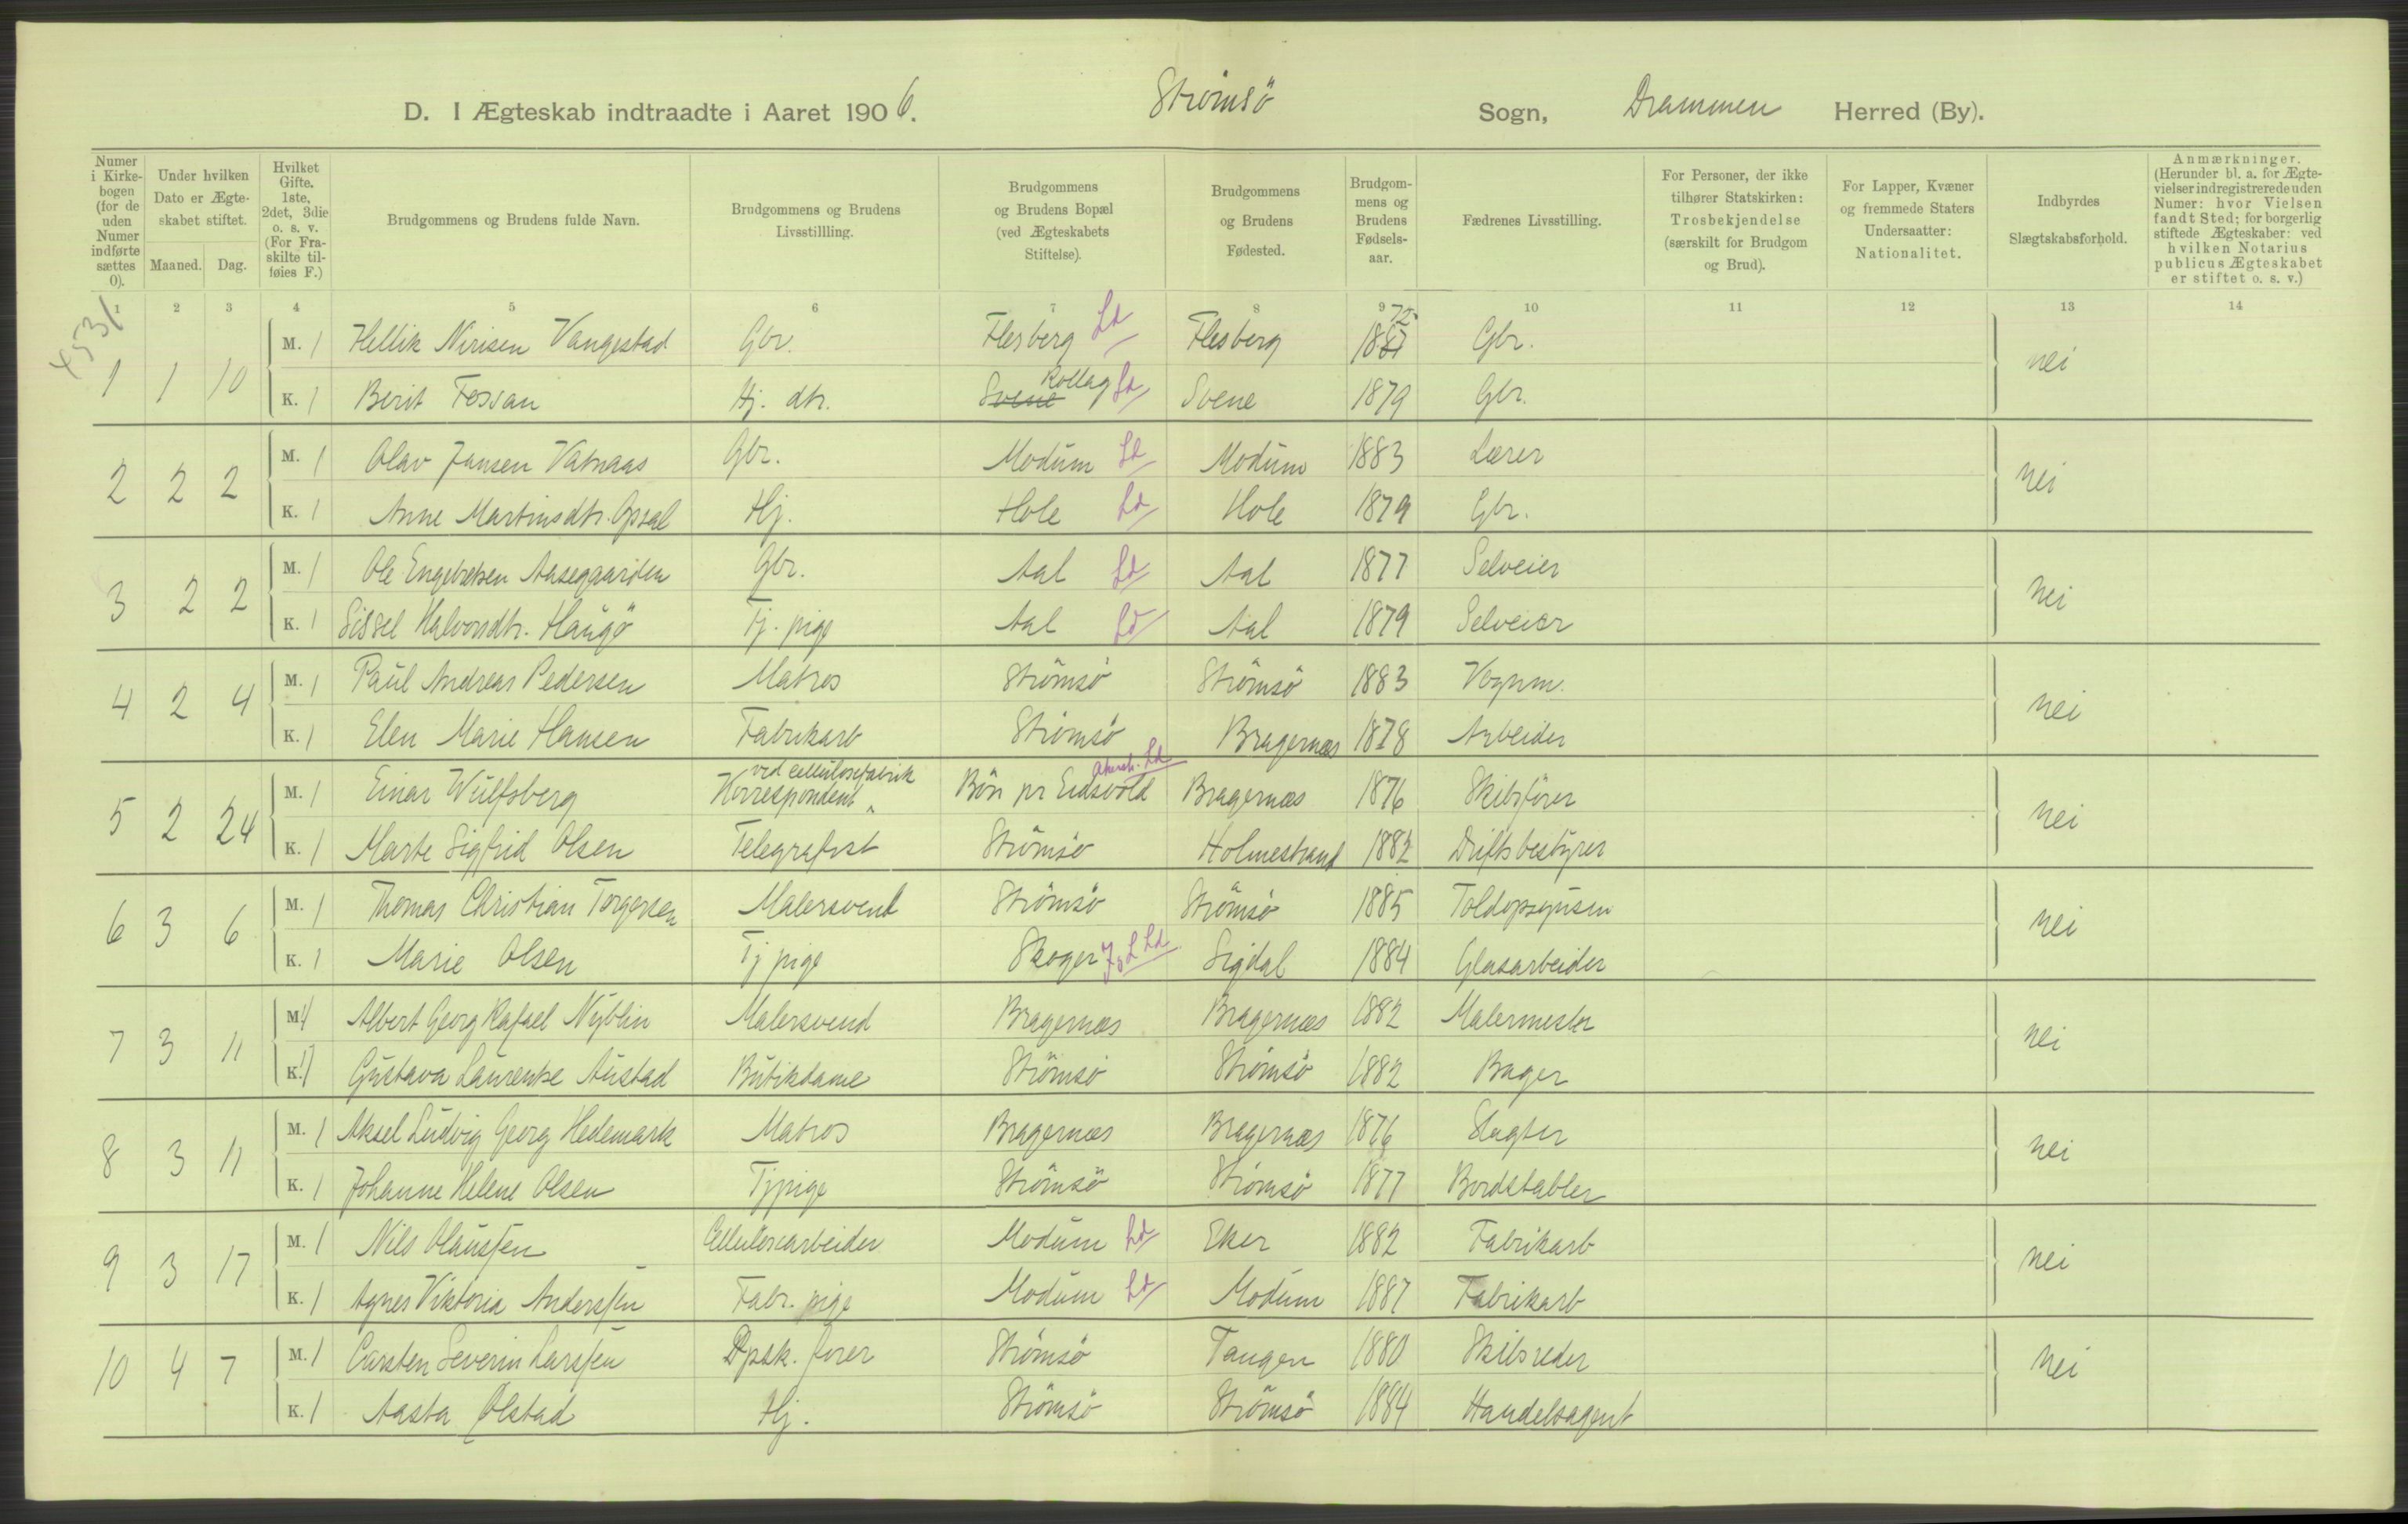 D. I Ægteskab indtraadte i Aaret 1906. Strömsö Sogn, Drammen Herred (By).
Numer i Kirkebogen (for de uden Numer indførte sættes 0).
Under hvilken Dato er Ægteskabet stiftet.
Maaned. Dag.
Hvilket Gifte, 1ste, 2det, 3die o. s. v. (For Fraskilte tilføies F.)
Brudgommens og Brudens fulde Navn.
Brudgommens og Brudens Livsstillling.
Brudgommens og Brudens Bopæl (ved Ægteskabets Stiftelse).
Brudgommens og Brudens Fødested.
Brudgommens og Brudens Fødselsaar.
Fædrenes Livsstilling.
For Personer, der ikke tilhører Statskirken: Trosbekjendelse (særskilt for Brudgom og Brud).
For Lapper, Kvæner og fremmede Staters Undersaatter: Nationalitet.
Indbyrdes Slægtskabsforhold.
Anmærkninger. (Herunder bl. a. for Ægtevielser indregistrerede uden Numer: hvor Vielsen fandt Sted; for borgerlig stiftede Ægteskaber: ved hvilken Notarius publicus Ægteskabet er stiftet o. s. v.)
1 2 3 4 5 6 7 8 9 10 11 12 13 14
4531
1 1 10 M. 1 Hellik Nirisen Vangestad Gbr. Flesberg Ld Flesberg 72 Gbr. nei
K. 1 Berit Fossan Hj. dtr. Svene Rollag Ld Svene 1879 Gbr.
2 2 2 M. 1 Olav Jansen Vatnaas Gbr. Modum Ld Modum 1883 Lærer nei
K. 1 Anne Martinsdtr. Opsal Hj. Hole Ld Hole 1879 Gbr.
3 2 2 M. 1 Ole Engebretsen Aasegaarden Gbr. Aal Ld Aal 1877 Selveier nei
K. 1 Sissel Halvorsdtr. Haugö Tj. pige Aal Ld Aal 1879 Selveier
4 2 4 M. 1 Paul Andreas Pedersen Matros Strömsö Strömsö 1883 Vognm. nei
K. 1 Elen Marie Hansen Fabrikarb Strömsö Bragernæs 1878 Arbeider
5 2 24 M. 1 Einar Wulfsberg Korrespondent ved cellulosefabrik Bön pr Eidsvold Akersh. Ld Bragernæs 1876 Skibsförer nei
K. 1 Marte Sigfrid Olsen Telegrafist Strömsö Holmestrand 1882 Driftsbestyrer
6 3 6 M. 1 Thomas Christian Torgersen Malersvend Strömsö Strömsö 1885 Toldopsynsm nei
K. 1 Marie Olsen Tj pige Skoger J L Ld Sigdal 1884 Glasarbeider
7 3 11 M. 1 Albert Georg Rafael Nyblin Malersvend Bragernæs Bragernæs 1882 Malermester nei
K. 1 Gustava Laurentse Austad Butikdame Strömsö Strömsö 1882 Bager
8 3 11 M. 1 Aksel Ludvig Georg Hedemark Matros Bragernæs Bragernæs 1876 Slagter nei
K. 1 Johanne Helene Olsen Tjpige Strömsö Strömsö 1877 Bordstabler
9 3 17 M. 1 Nils Olaussen Cellulosearbeider Modum Ld Eker 1882 Fabrikarb nei
K. 1 Agnes Viktoria Anderssen Fabr. pige Modum Ld Modum 1887 Fabrikarb
10 4 7 M. 1 Carsten Severin Larssen Dpsk. förer Strömsö Tangen 1880 Skibsreder nei
K. 1 Aasta Ølstad Hj. Strömsö Strömsö 1884 Handelsagent